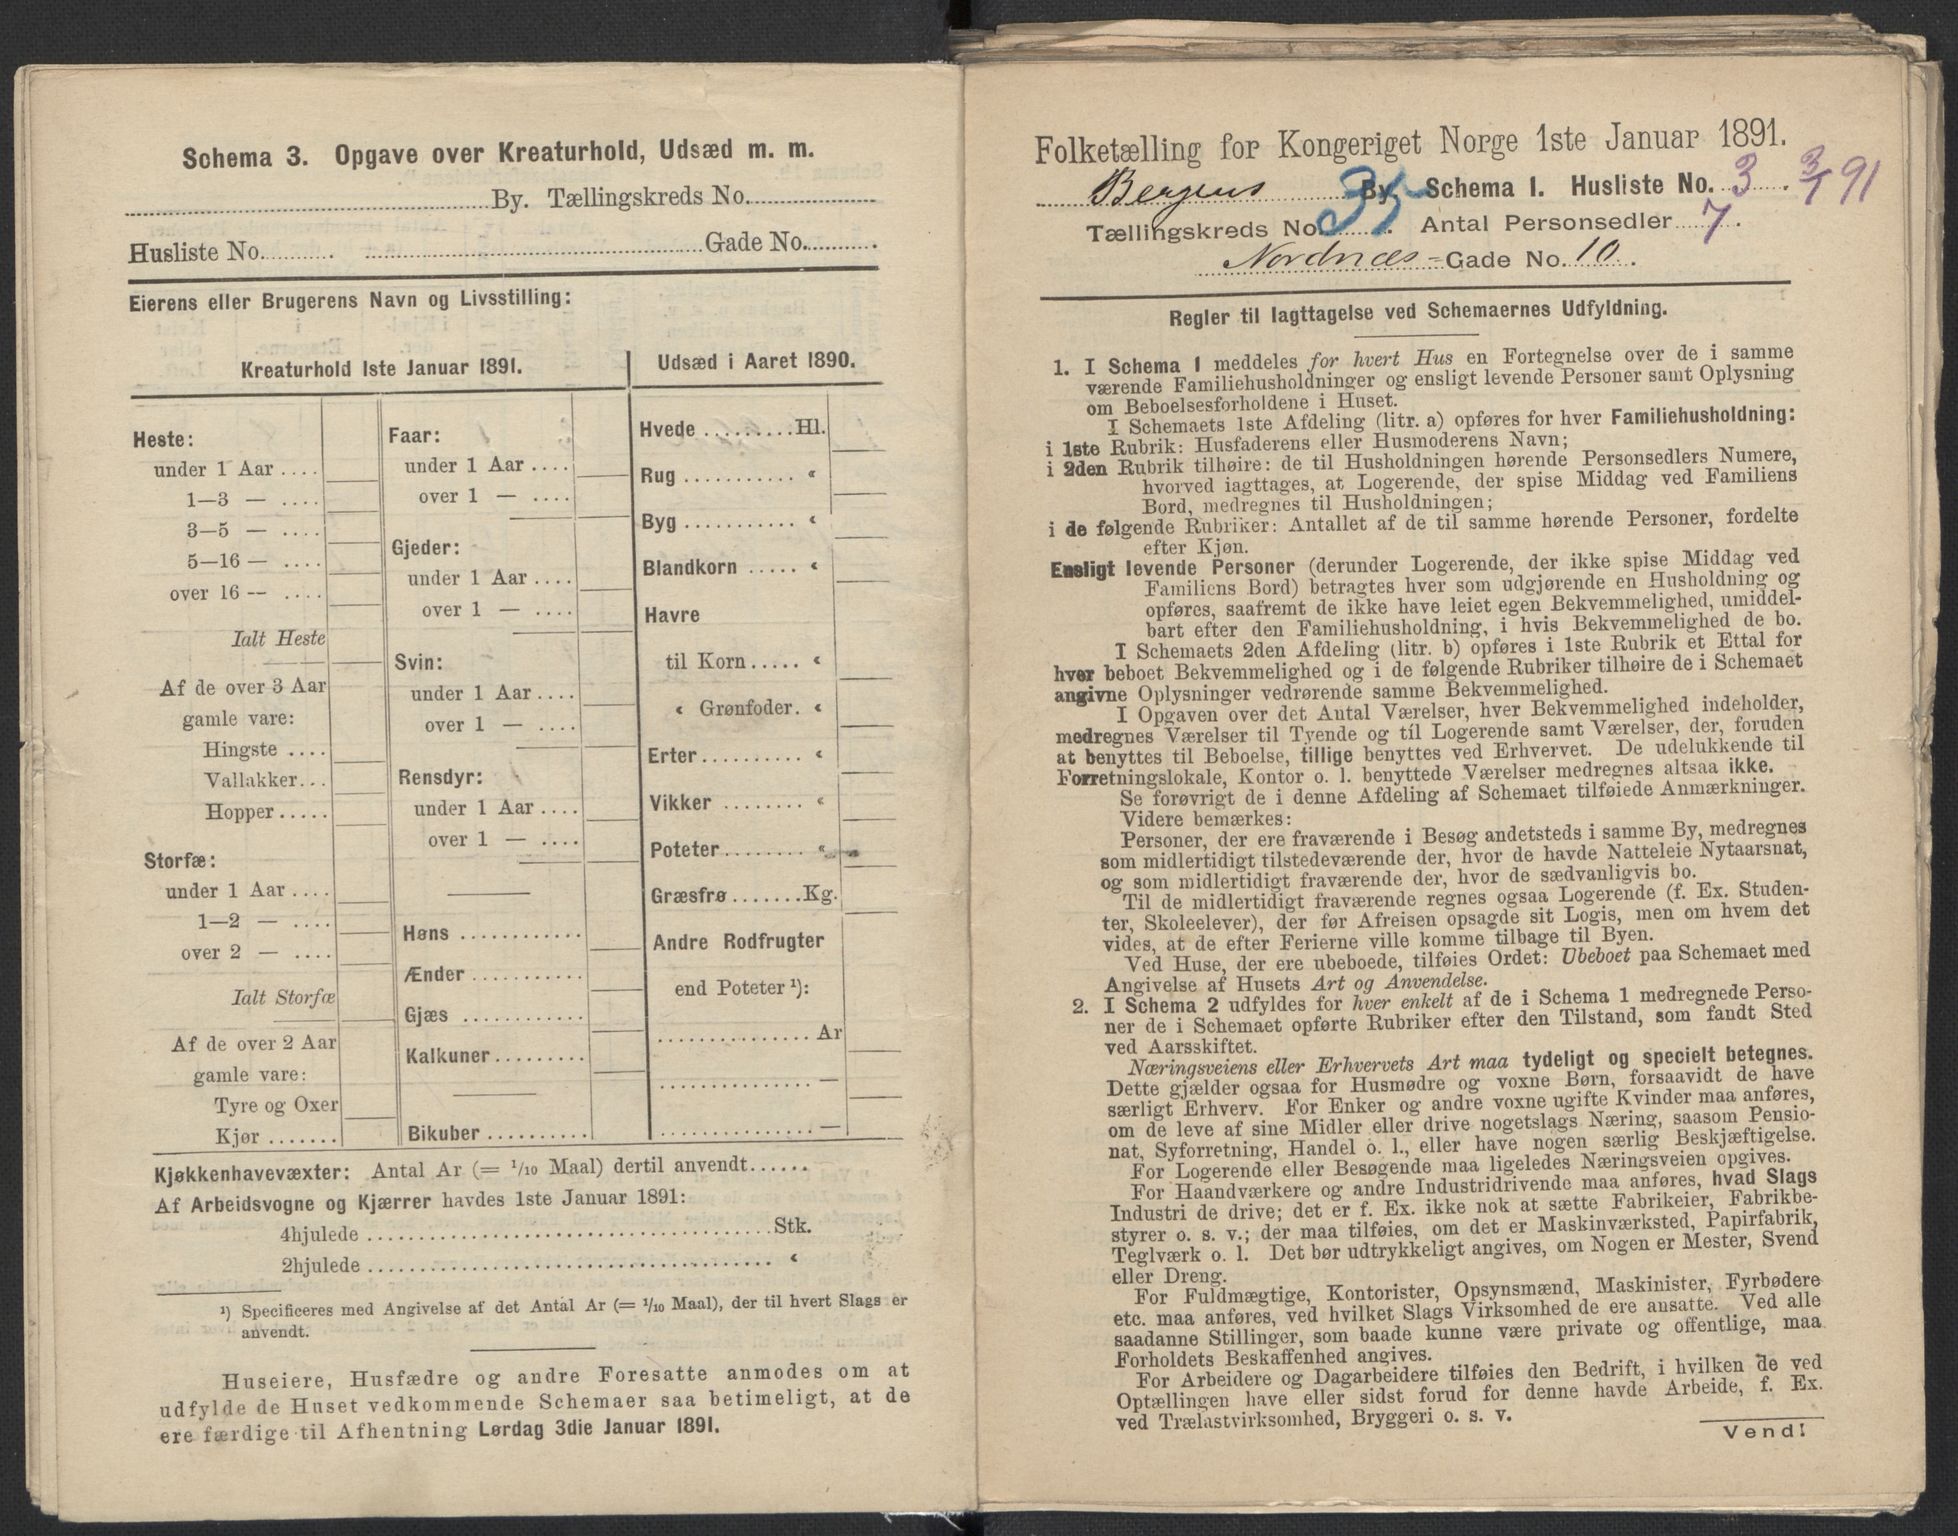 Schema 3. Opgave over Kreaturhold, Udsæd m. m.
By. Tællingskreds No.
Husliste No. Gade No.
Eierens eller Brugerens Navn og Livsstilling:
Kreaturhold 1ste Januar 1891.
Heste:
under 1 Aar ....
1—3 — ....
3—5 — ....
5—16 — ....
over 16 — ....
Ialt Heste
Af de over 3 Aar
gamle vare:
Hingste ....
Vallakker...
Hopper.....
Storfæ:
under 1 Aar ....
1—2 — ....
over 2 — ....
Ialt Storfæ
Af de over 2 Aar
gamle vare:
Tyre og Oxer
Kjør .......
Faar:
under 1 Aar ....
over 1 — ....
Gjeder:
under 1 Aar ....
over 1 — ....
Svin:
under 1 Aar ....
over 1 — ....
Rensdyr:
under 1 Aar ....
over 1 — ....
Høns ............
Ænder ...........
Gjæs ............
Kalkuner.........
Bikuber..........
Udsæd i Aaret 1890.
Hvede .........Hl.
Rug ........... «
Byg ........... «
Blandkorn ..... «
Havre
til Korn..... «
« Grønfoder. «
Erter.......... «
Vikker ........ «
Poteter........ «
Græsfrø.......Kg.
Andre Rodfrugter
end Poteter ¹):
............... Ar
............... —
............... —
Kjøkkenhavevæxter: Antal Ar (= 1/10 Maal) dertil anvendt......
Af Arbeidsvogne og Kjærrer havdes 1ste Januar 1891:
4hjulede ........................................Stk.
2hjulede ........................................ «
¹) Specificeres med Angivelse af det Antal Ar (= 1/10 Maal), der til hvert Slags er
anvendt.
Huseiere, Husfædre og andre Foresatte anmodes om at
udfylde de Huset vedkommende Schemaer saa betimeligt, at de
ere færdige til Afhentning Lørdag 3die Januar 1891.
Folketælling for Kongeriget Norge 1ste Januar 1891.
Bergens By. Schema 1. Husliste No. 3. 3/1 91
Tællingskreds No. 35. Antal Personsedler 7.
Nordnæs-Gade No. 10.
Regler til Iagttagelse ved Schemaernes Udfyldning.
1. I Schema 1 meddeles for hvert Hus en Fortegnelse over de i samme
værende Familiehusholdninger og ensligt levende Personer samt Oplysning
om Beboelsesforholdene i Huset.
I Schemaets 1ste Afdeling (litr. a) opføres for hver Familiehusholdning:
i 1ste Rubrik: Husfaderens eller Husmoderens Navn;
i 2den Rubrik tilhøire: de til Husholdningen hørende Personsedlers Numere,
hvorved iagttages, at Logerende, der spise Middag ved Familiens
Bord, medregnes til Husholdningen;
i de følgende Rubriker: Antallet af de til samme hørende Personer, fordelte
efter Kjøn.
Ensligt levende Personer (derunder Logerende, der ikke spise Middag ved
Familiens Bord) betragtes hver som udgjørende en Husholdning og
opføres, saafremt de ikke have leiet egen Bekvemmelighed, umiddel-
bart efter den Familiehusholdning, i hvis Bekvemmelighed de bo.
I Schemaets 2den Afdeling (litr. b) opføres i 1ste Rubrik et Ettal for
hver beboet Bekvemmelighed og i de følgende Rubriker tilhøire de i Schemaet
angivne Oplysninger vedrørende samme Bekvemmelighed.
I Opgaven over det Antal Værelser, hver Bekvemmelighed indeholder,
medregnes Værelser til Tyende og til Logerende samt Værelser, der, foruden
at benyttes til Beboelse, tillige benyttes ved Erhvervet. De udelukkende til
Forretningslokale, Kontor o. l. benyttede Værelser medregnes altsaa ikke.
Se forøvrigt de i denne Afdeling af Schemaet tilføiede Anmærkninger.
Videre bemærkes:
Personer, der ere fraværende i Besøg andetsteds i samme By, medregnes
som midlertidigt tilstedeværende der, hvor de havde Natteleie Nytaarsnat,
og som midlertidigt fraværende der, hvor de sædvanligvis bo.
Til de midlertidigt fraværende regnes ogsaa Logerende (f. Ex. Studen-
ter, Skoleelever), der før Afreisen opsagde sit Logis, men om hvem det
vides, at de efter Ferierne ville komme tilbage til Byen.
Ved Huse, der ere ubeboede, tilføies Ordet: Ubeboet paa Schemaet med
Angivelse af Husets Art og Anvendelse.
2. I Schema 2 udfyldes for hver enkelt af de i Schema 1 medregnede Perso-
ner de i Schemaet opførte Rubriker efter den Tilstand, som fandt Sted
ved Aarsskiftet.
Næringsveiens eller Erhvervets Art maa tydeligt og specielt betegnes.
Dette gjælder ogsaa for Husmødre og voxne Børn, forsaavidt de have
særligt Erhverv. For Enker og andre voxne ugifte Kvinder maa anføres,
om de leve af sine Midler eller drive nogetslags Næring, saasom Pensio-
nat, Syforretning, Handel o. l., eller have nogen særlig Beskjæftigelse.
For Logerende eller Besøgende maa ligeledes Næringsveien opgives.
For Haandværkere og andre Industridrivende maa anføres, hvad Slags
Industri de drive; det er f. Ex. ikke nok at sætte Fabrikeier, Fabrikbe-
styrer o. s. v.; der maa tilføies, om det er Maskinværksted, Papirfabrik,
Teglværk o. l. Det bør udtrykkeligt angives, om Nogen er Mester, Svend
eller Dreng.
For Fuldmægtige, Kontorister, Opsynsmænd, Maskinister, Fyrbødere
etc. maa anføres, ved hvilket Slags Virksomhed de ere ansatte. Ved alle
saadanne Stillinger, som baade kunne være private og offentlige, maa
Forholdets Beskaffenhed angives.
For Arbeidere og Dagarbeidere tilføies den Bedrift, i hvilken de ved
Optællingen have eller sidst forud for denne havde Arbeide, f. Ex.
ved Trælastvirksomhed, Bryggeri o. s. v.
Vend!